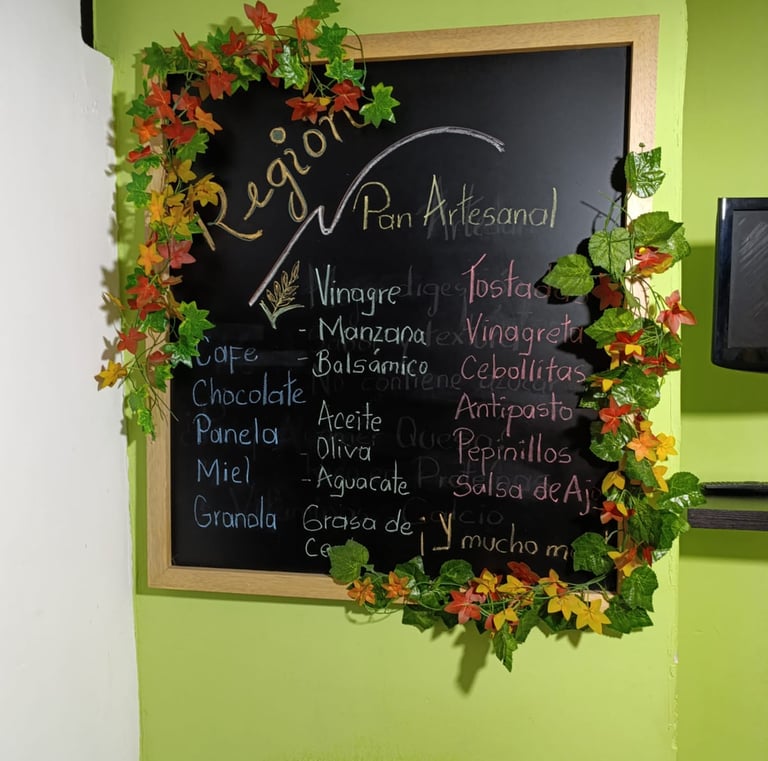 Region
Pan Artesanal
Cafe
Chocolate
Panela
Miel
Granola
Vinagre
- Manzana
- Balsámico
Aceite
- Oliva
- Aguacate
Grasa de
Vinagreta
Cebollitas
Antipasto
Pepinillos
Salsa de
¡Y mucho